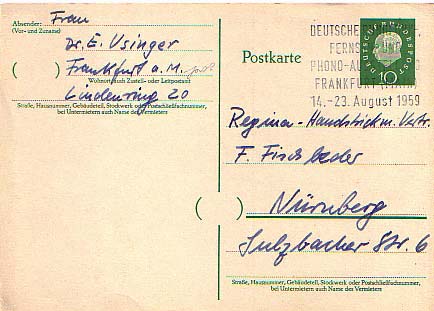 Absender: Frau
(Vor- und Zuname)
Dr. E. Usinger
Frankfurt a. M.
Wohnort, auch Zustell- oder Leitpostamt
Lindenring 20
Straße, Hausnummer, Gebäudeteil, Stockwerk oder Postschließfachnummer,
bei Untermietern auch Name des Vermieters
DEUTSCHE
FERNSEH
PHONO-AU
FRANKFURT (MAIN)
14.-23. August 1959
DEUTSCHE BUNDESPOST
10
Postkarte
Regina-Handstrickm. Vertr.
F. Fischbeder
Nürnberg
Sulzbacher Str. 6
Straße, Hausnummer, Gebäudeteil, Stockwerk oder Postschließfachnummer,
bei Untermietern auch Name des Vermieters